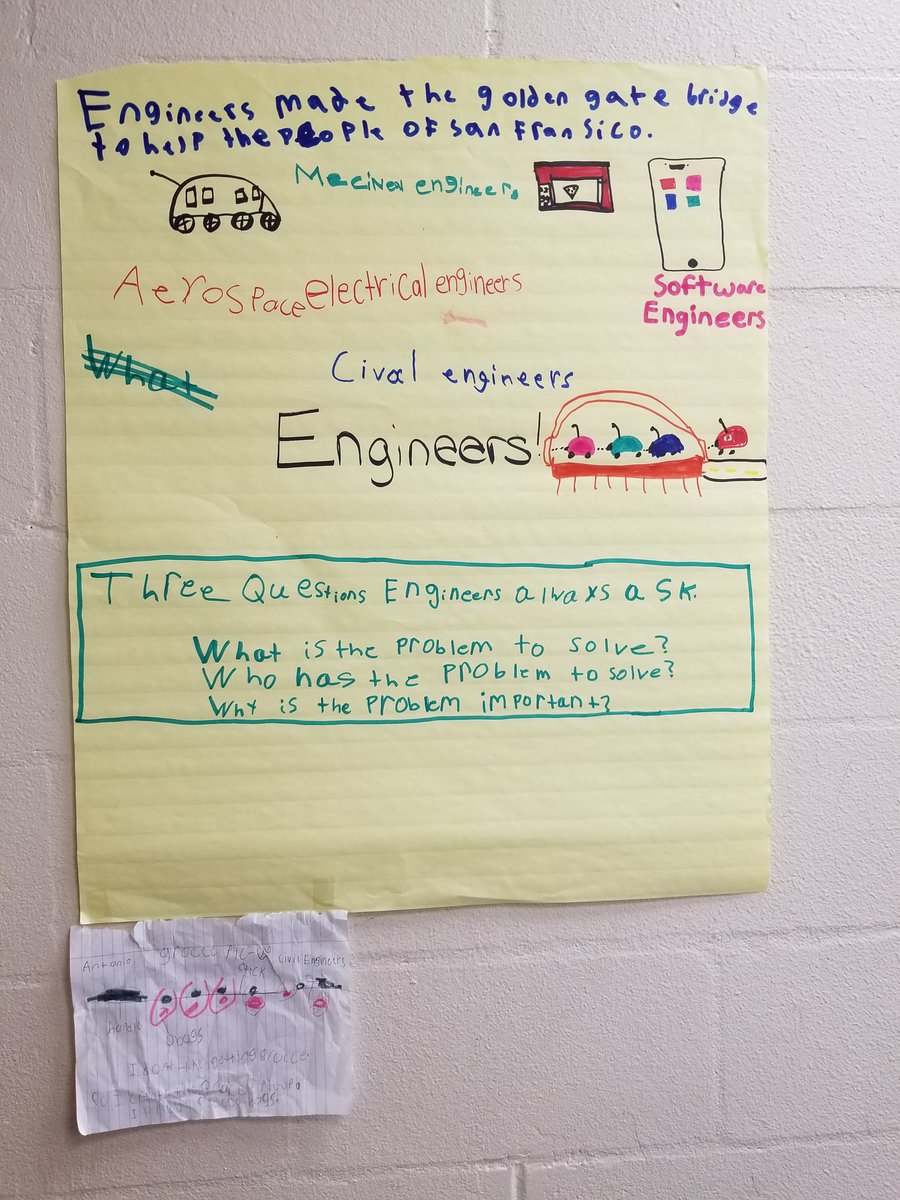 Engineers made the golden gate bridge
to help the people of san fransico.
Mecinen engineers
Aerospace electrical engineers
Software
Engineers
What
Cival engineers
Engineers!
Three Questions Engineers always ask.
What is the problem to solve?
Who has the problem to solve?
Why is the problem important?
Antonio
Civil Engineers
bags